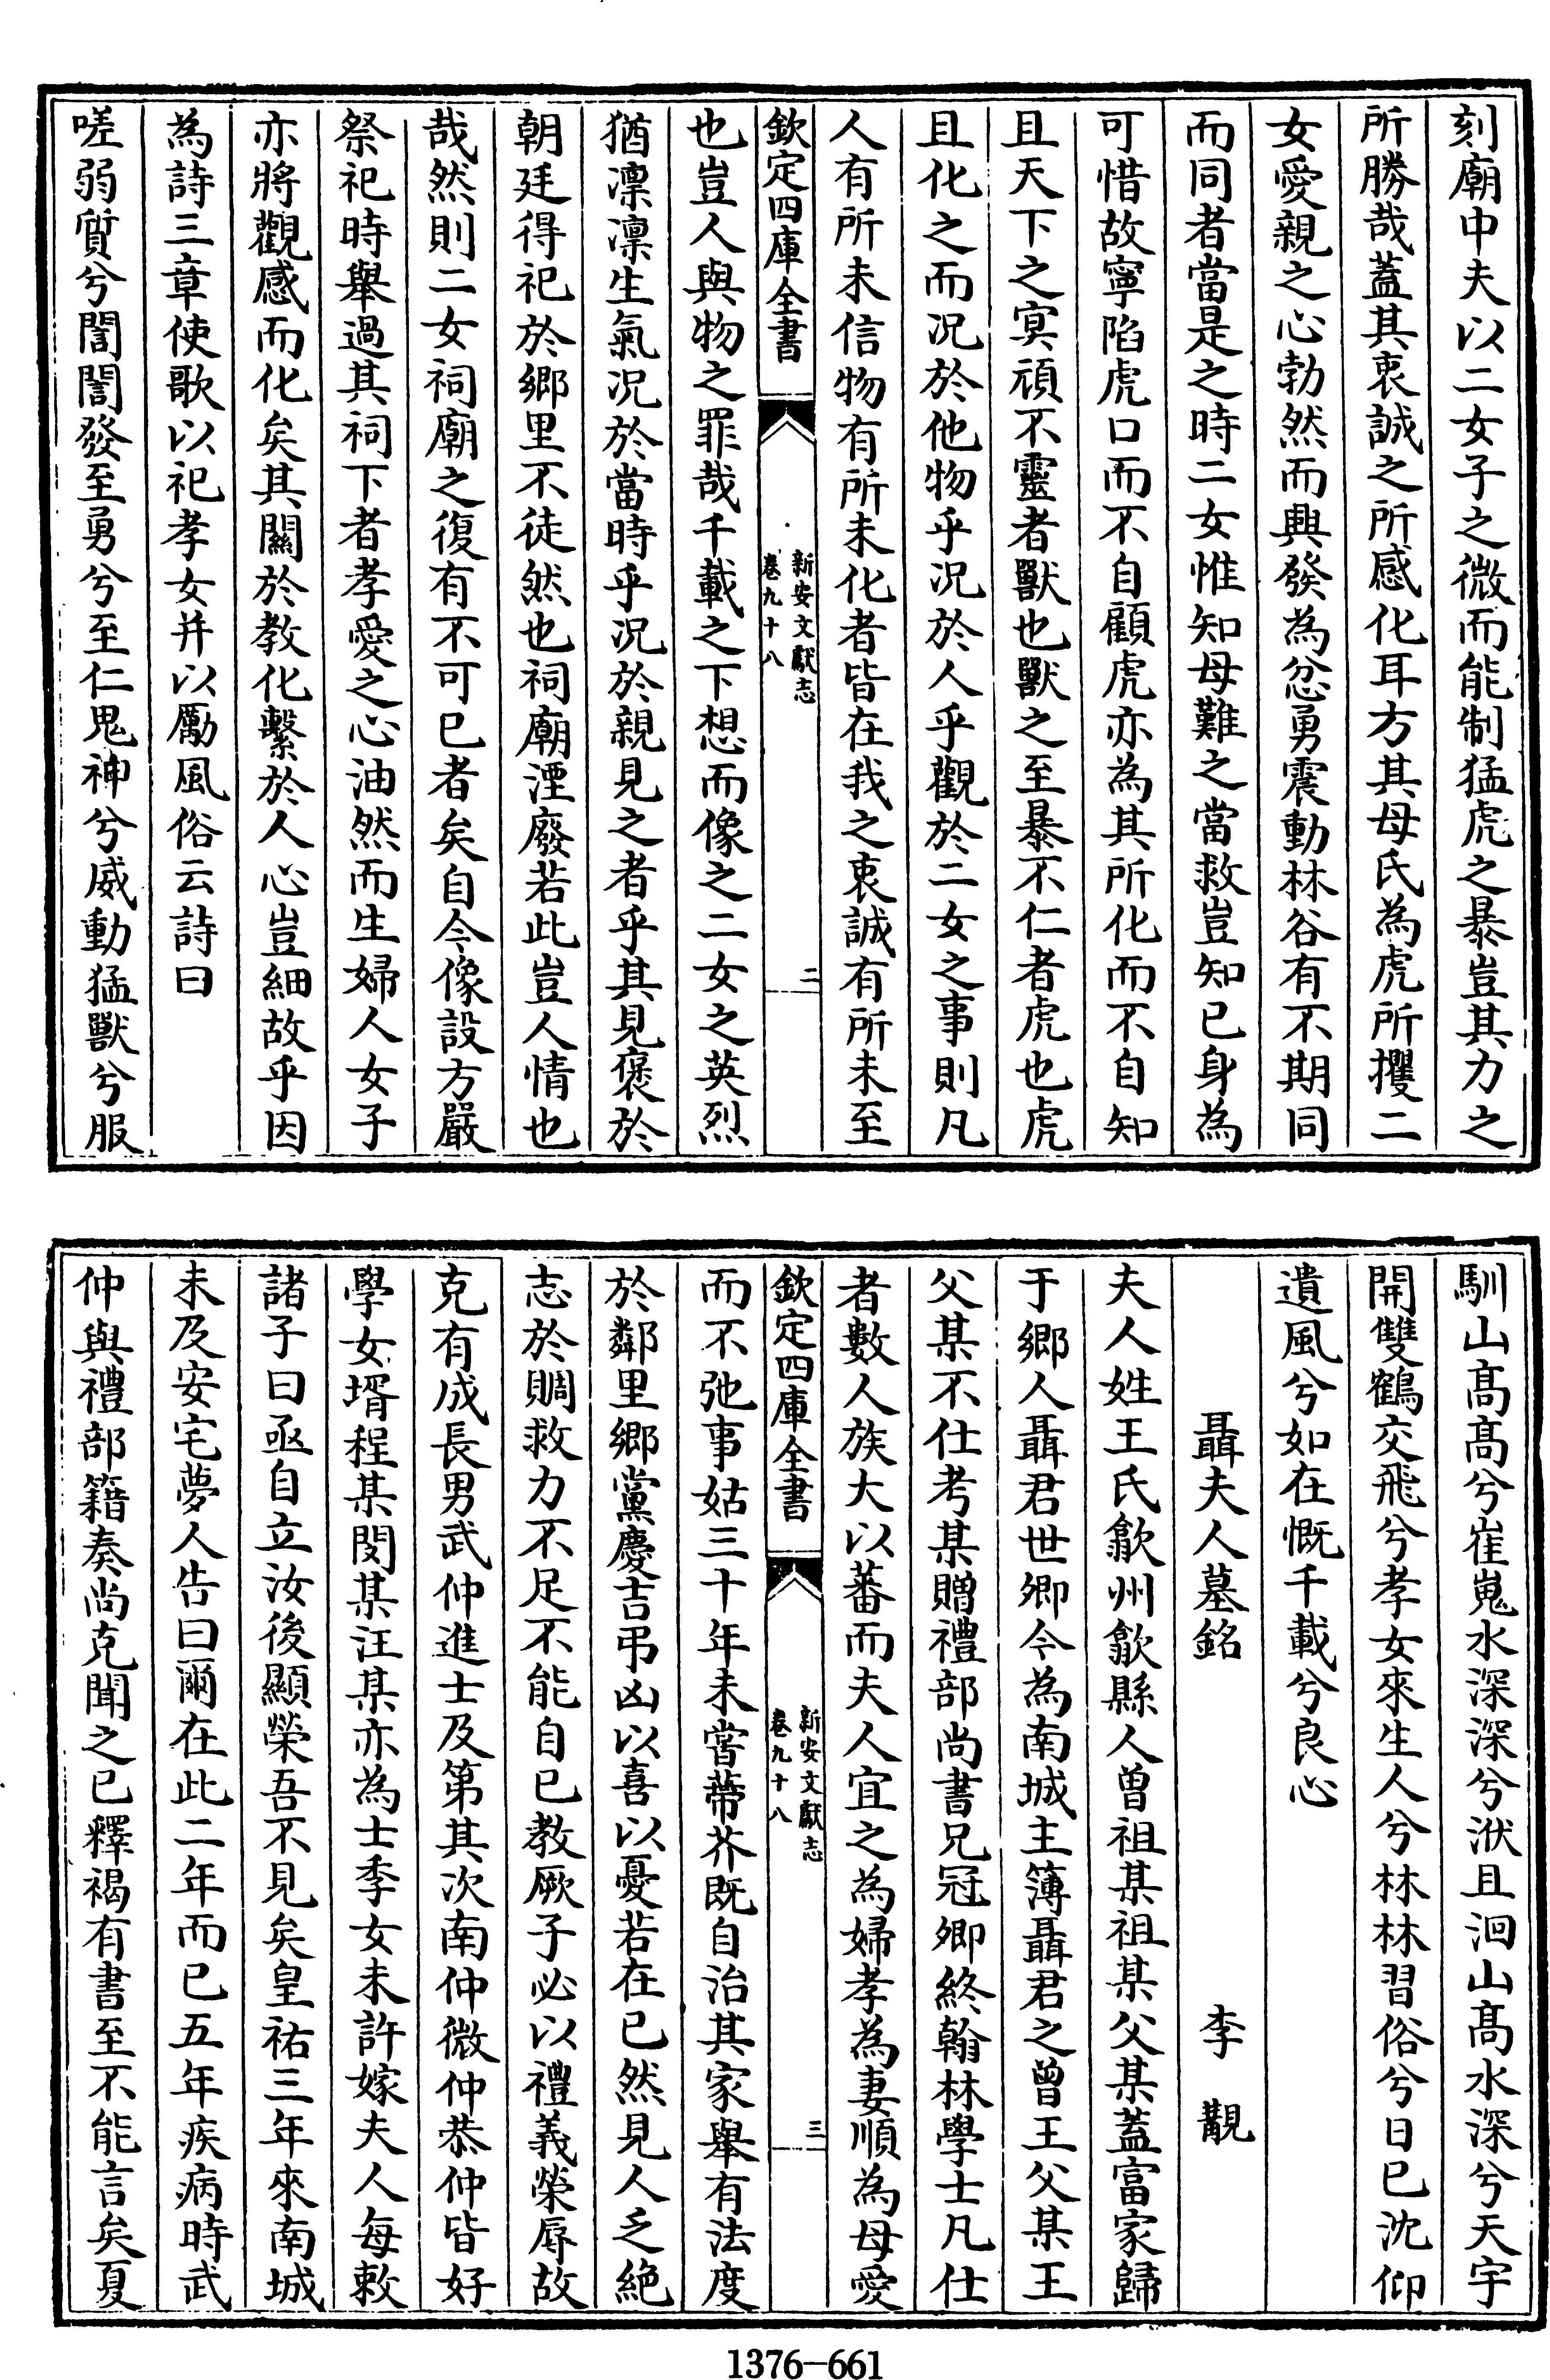 刻廟中夫以二女子之微而能制猛虎之暴豈其力之
所勝哉蓋其衷誠之所感化耳方其母氏為虎所攫二
女愛親之心勃然而興發為忿勇震動林谷有不期同
而同者當是之時二女惟知母難之當救豈知已身為
可惜故寧陷虎口而不自顧虎亦為其所化而不自知
且天下之冥頑不靈者獸也獸之至暴不仁者虎也虎
且化之而况於他物乎况於人乎觀於二女之事則凡
人有所未信物有所未化者皆在我之衷誠有所未至
欽定四庫全書
新安文獻志
卷九十八
二
也豈人與物之罪哉千載之下想而像之二女之英烈
猶凛凛生氣况於當時乎况於親見之者乎其見褒於
朝廷得祀於鄉里不徒然也祠廟湮廢若此豈人情也
哉然則二女祠廟之復有不可已者矣自今像設方嚴
祭祀時舉過其祠下者孝愛之心油然而生婦人女子
亦將觀感而化矣其關於教化繫於人心豈細故乎因
為詩三章使歌以祀孝女并以勵風俗云詩曰
嗟弱質兮誾誾發至勇兮至仁鬼神兮威動猛獸兮服
馴山髙髙兮崔嵬水深深兮洑且洄山髙水深兮天宇
開雙鶴交飛兮孝女來生人兮林林習俗兮日已沈仰
遺風兮如在慨千載兮良心
聶夫人墓銘 李覯
夫人姓王氏歙州歙縣人曾祖某祖某父某蓋富家歸
于鄉人聶君世卿今為南城主簿聶君之曾王父某王
父某不仕考某贈禮部尚書兄冠卿終翰林學士凡仕
者數人族大以蕃而夫人宜之為婦孝為妻順為母愛
欽定四庫全書
新安文獻志
卷九十八
三
而不弛事姑三十年未嘗蔕芥既自治其家舉有法度
於鄰里鄉黨慶吉弔凶以喜以憂若在已然見人乏絶
志於賙救力不足不能自已教厥子必以禮義榮辱故
克有成長男武仲進士及第其次南仲微仲恭仲皆好
學女壻程某閔某汪某亦為士季女未許嫁夫人每敕
諸子曰亟自立汝後顯榮吾不見矣皇祐三年來南城
未及安宅夢人告曰爾在此二年而已五年疾病時武
仲與禮部籍奏尚克聞之已釋褐有書至不能言矣夏
1376-661